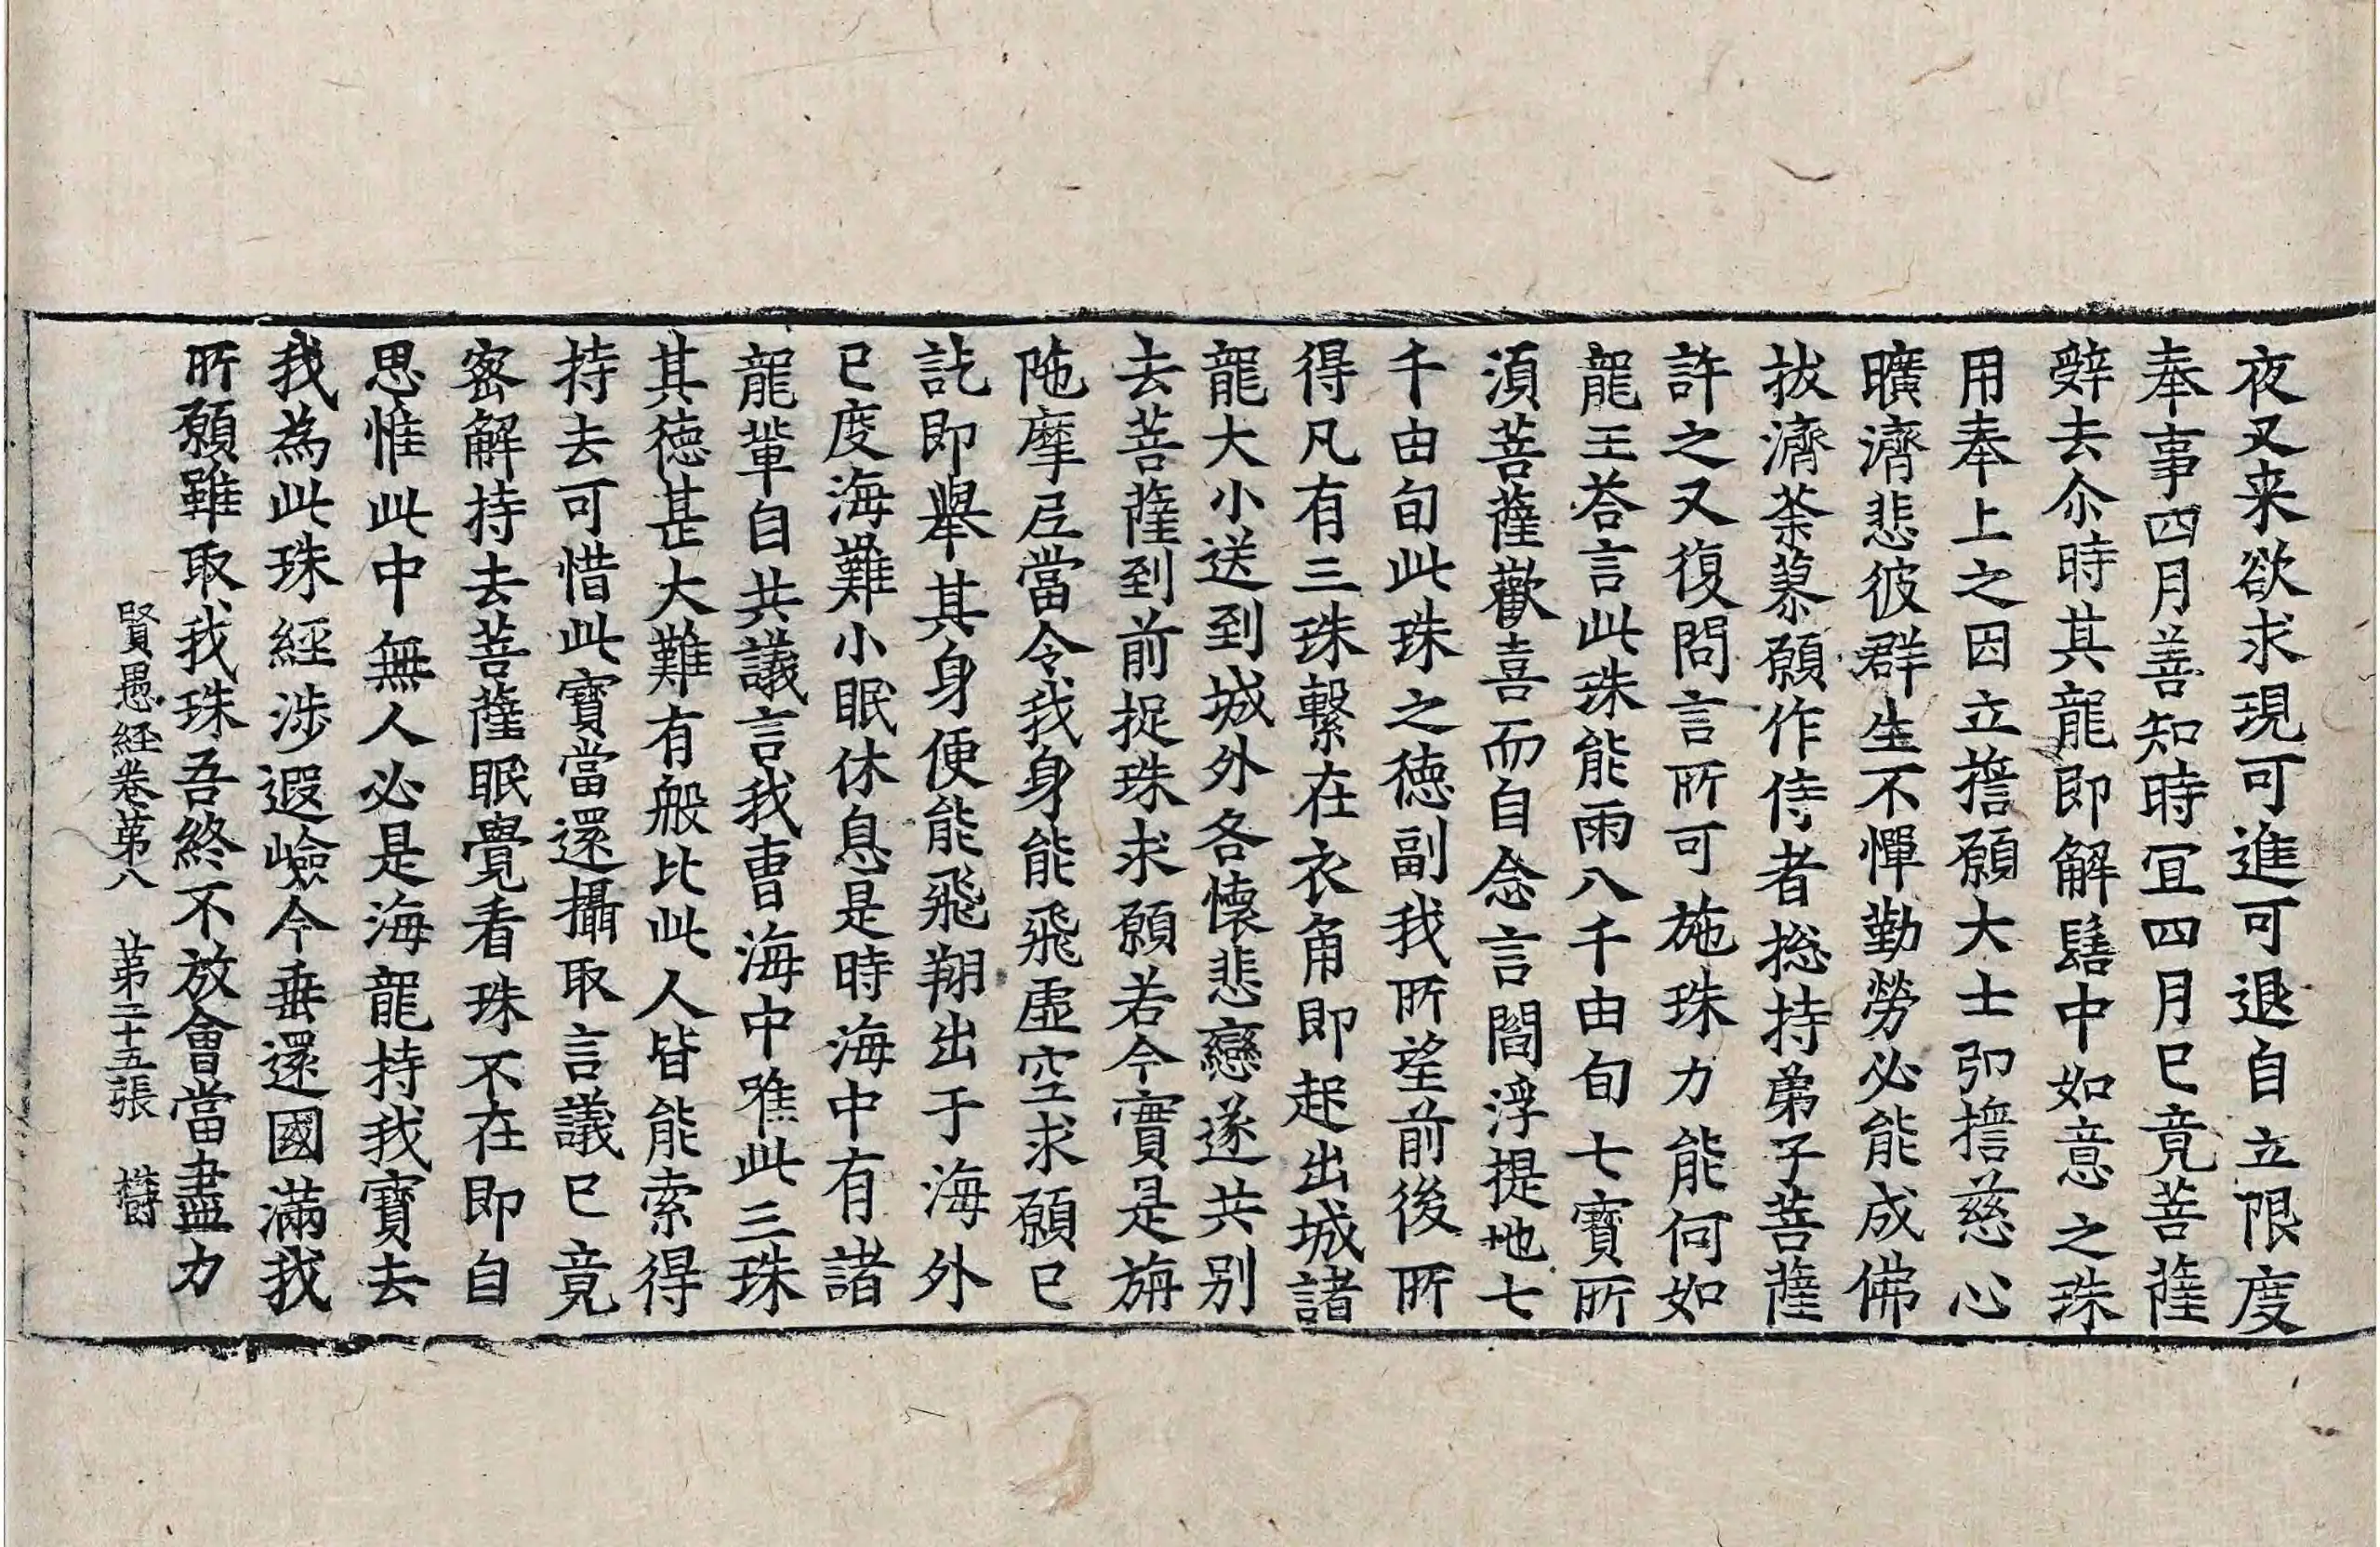 夜叉来欲求現可進可退自立限度
奉事四月善知時宜四月已竟菩薩
辤去尒時其龍即解髻中如意之珠
用奉上之因立擔願大士卬擔慈心
曠濟悲彼群生不憚勤勞必能成佛
拔濟荼蓼願作侍者揔持弟子菩薩
許之又復問言所可施珠力能何如
龍王荅言此珠能雨八千由旬七寶所
湏菩薩歡喜而自念言閻浮提地七
千由旬此珠之德副我所望前後所
得凡有三珠繫在衣角即起出城諸
龍大小送到城外各懷悲戀遂共别
去菩薩到前捉珠求願若今實是旃
陁摩尼當令我身能飛虛空求願已
訖即舉其身便能飛翔出于海外
已度海難小眠休息是時海中有諸
龍輩自共議言我曹海中唯此三珠
其德甚大難有般比此人皆能索得
持去可惜此寶當還攝取言議已竟
密解持去菩薩眠覺看珠不在即自
思惟此中無人必是海龍持我寶去
我為此珠經涉遐嶮今垂還國滿我
所願雖取我珠吾終不放會當盡力
賢愚経卷苐八 苐二十五張